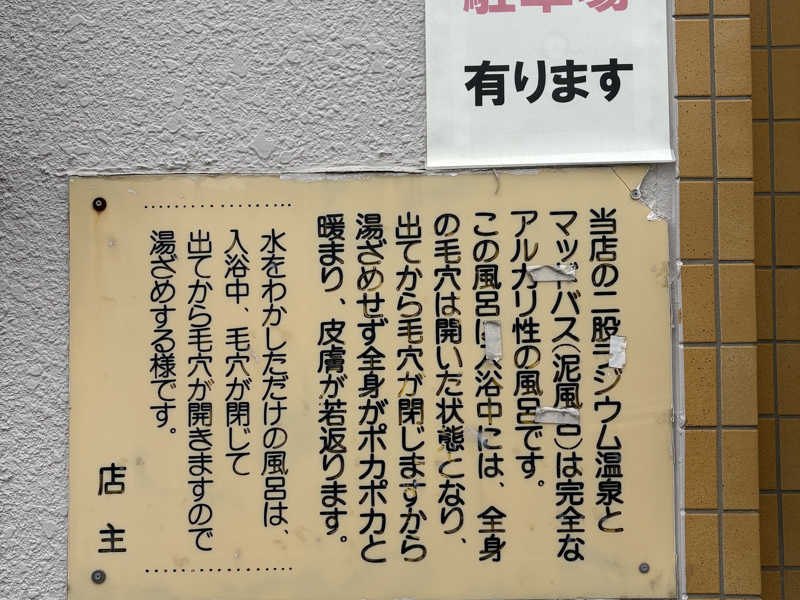 駐車場
有ります
当店の二股ラジウム温泉と
マッドバス(泥風呂)は完全な
アルカリ性の風呂です。
この風呂は入浴中には、全身
の毛穴は開いた状態となり、
出てから毛穴が閉じますから
湯ざめせず全身がポカポカと
暖まり、皮膚が若返ります。
水をわかしただけの風呂は、
入浴中、毛穴が閉じて
出てから毛穴が開きますので
湯ざめする様です。
店主